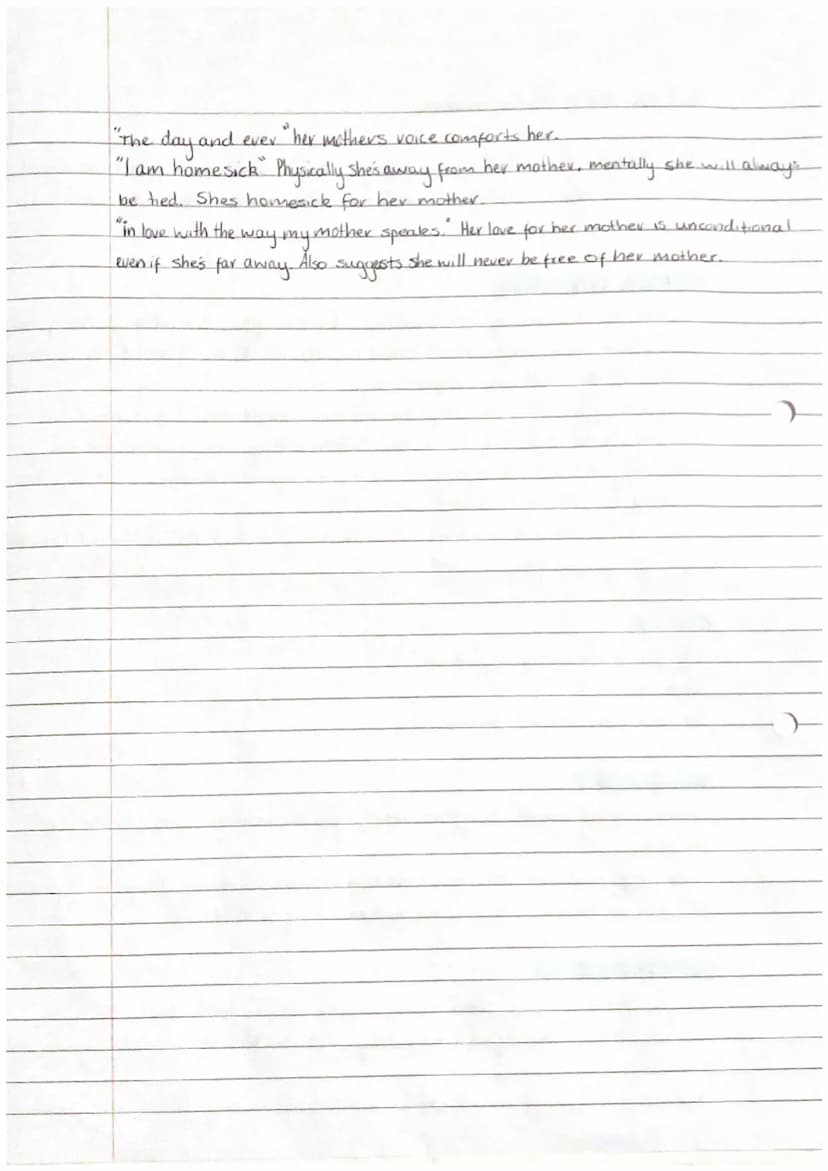 "The day and ever" her mothers voice comforts her.
"I am homesick" Physically she's away from her mother, mentally she will always
be tied. Shes homesick for her mother.
"in love with the way my mother speakes." Her love for her mother is unconditional
even if she's far away. Also suggests she will never be free of her mother.